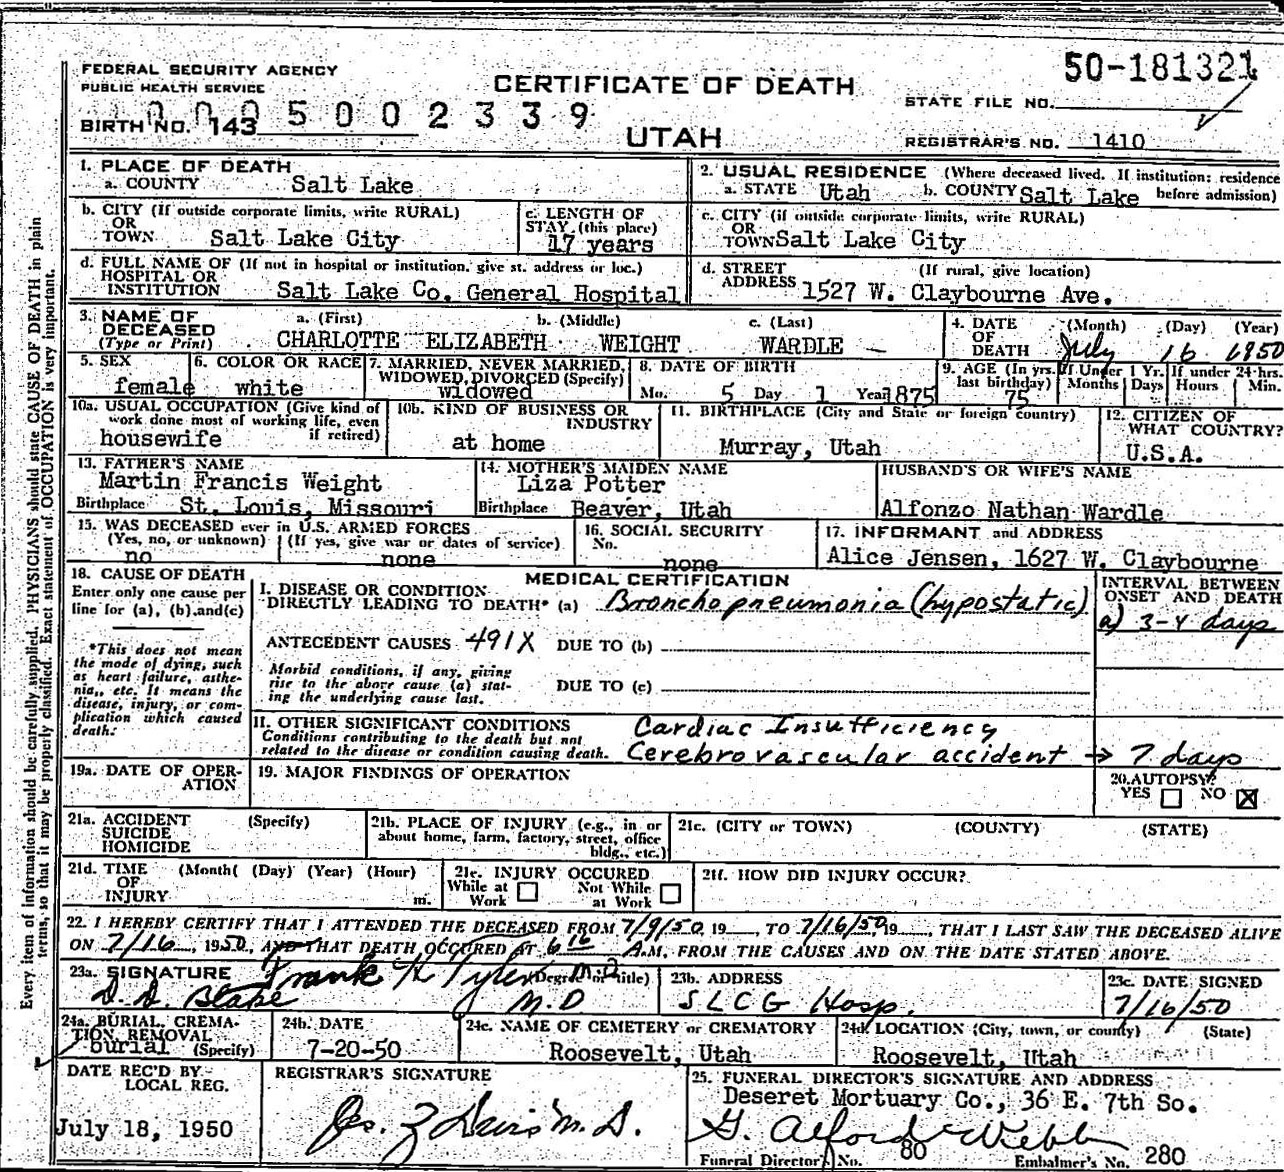 FEDERAL SECURITY AGENCY
PUBLIC HEALTH SERVICE
CERTIFICATE OF DEATH
50-181321
STATE FILE NO.
BIRTH NO. 143
0005002339
UTAH
REGISTRAR'S NO. 1410
Every item of information should be carefully supplied. PHYSICIANS should state CAUSE OF DEATH in plain
terms, so that it may be properly classified. Exact statement of OCCUPATION is very important.
1. PLACE OF DEATH
a. COUNTY Salt Lake
2. USUAL RESIDENCE (Where deceased lived. If institution: residence
a. STATE Utah b. COUNTY Salt Lake before admission)
b. CITY (If outside corporate limits, write RURAL)
OR
TOWN Salt Lake City
c. LENGTH OF
STAY (this place)
17 years
c. CITY (if outside corporate limits, write RURAL)
OR
TOWN Salt Lake City
d. FULL NAME OF (If not in hospital or institution, give st. address or loc.)
HOSPITAL OR
INSTITUTION Salt Lake Co. General Hospital
d. STREET (If rural, give location)
ADDRESS 1527 W. Claybourne Ave.
3. NAME OF
DECEASED
(Type or Print)
a. (First) b. (Middle) c. (Last)
CHARLOTTE ELIZABETH WEIGHT WARDLE
4. DATE (Month) (Day) (Year)
OF
DEATH July 16 1950
5. SEX
female
6. COLOR OR RACE
white
7. MARRIED, NEVER MARRIED,
WIDOWED, DIVORCED (Specify)
widowed
8. DATE OF BIRTH
Mo. 5 Day 1 Year 1875
9. AGE (In yrs.
last birthday)
75
If Under 1 Yr.
Months Days
If under 24 hrs.
Hours Min.
10a. USUAL OCCUPATION (Give kind of
work done most of working life, even
if retired)
housewife
10b. KIND OF BUSINESS OR
INDUSTRY
at home
11. BIRTHPLACE (City and State or foreign country)
Murray, Utah
12. CITIZEN OF
WHAT COUNTRY?
U.S.A.
13. FATHER'S NAME
Martin Francis Weight
Birthplace St. Louis, Missouri
14. MOTHER'S MAIDEN NAME
Liza Potter
Birthplace Beaver, Utah
HUSBAND'S OR WIFE'S NAME
Alfonzo Nathan Wardle
15. WAS DECEASED ever in U.S. ARMED FORCES
(Yes, no, or unknown) (If yes, give war or dates of service)
no none
16. SOCIAL SECURITY
No.
none
17. INFORMANT and ADDRESS
Alice Jensen, 1627 W. Claybourne
18. CAUSE OF DEATH
Enter only one cause per
line for (a), (b) and (c)
*This does not mean
the mode of dying, such
as heart failure, asthe-
nia,, etc. It means the
disease, injury, or com-
plication which caused
death.
MEDICAL CERTIFICATION
I. DISEASE OR CONDITION
DIRECTLY LEADING TO DEATH* (a) Bronchopneumonia (hypostatic)
INTERVAL BETWEEN
ONSET AND DEATH
a) 3-4 days
ANTECEDENT CAUSES 491X DUE TO (b)
Morbid conditions, if any, giving
rise to the above cause (a) stat-
ing the underlying cause last.
DUE TO (c)
II. OTHER SIGNIFICANT CONDITIONS
Conditions contributing to the death but not
related to the disease or condition causing death.
Cardiac Insufficiency
Cerebrovascular accident → 7 days
19a. DATE OF OPER-
ATION
19. MAJOR FINDINGS OF OPERATION
20. AUTOPSY?
YES ☐ NO ☒
21a. ACCIDENT (Specify)
SUICIDE
HOMICIDE
21b. PLACE OF INJURY (e.g., in or
about home, farm, factory, street, office
bldg., etc.)
21c. (CITY or TOWN) (COUNTY) (STATE)
21d. TIME (Month( (Day) (Year) (Hour)
OF
INJURY m.
21e. INJURY OCCURED
While at Work ☐ Not While at Work ☐
21f. HOW DID INJURY OCCUR?
22. I HEREBY CERTIFY THAT I ATTENDED THE DECEASED FROM 7/9/50, 19__, TO 7/16/50, 19__, THAT I LAST SAW THE DECEASED ALIVE
ON 7/16, 1950, AND THAT DEATH OCCURED AT 6 16 A.M. FROM THE CAUSES AND ON THE DATE STATED ABOVE.
23a. SIGNATURE (Degree or title)
Frank H Tyler M.D
D. D. Blake M.D
23b. ADDRESS
SLCG Hosp.
23c. DATE SIGNED
7/16/50
24a. BURIAL, CREMA-
TION REMOVAL
burial (Specify)
24b. DATE
7-20-50
24c. NAME OF CEMETERY or CREMATORY
Roosevelt, Utah
24d. LOCATION (City, town, or county) (State)
Roosevelt, Utah
DATE REC'D BY
LOCAL REG.
July 18, 1950
REGISTRAR'S SIGNATURE
25. FUNERAL DIRECTOR'S SIGNATURE AND ADDRESS
Deseret Mortuary Co., 36 E. 7th So.
G. Alford Webb
Funeral Director No. 80 Embalmer's No. 280